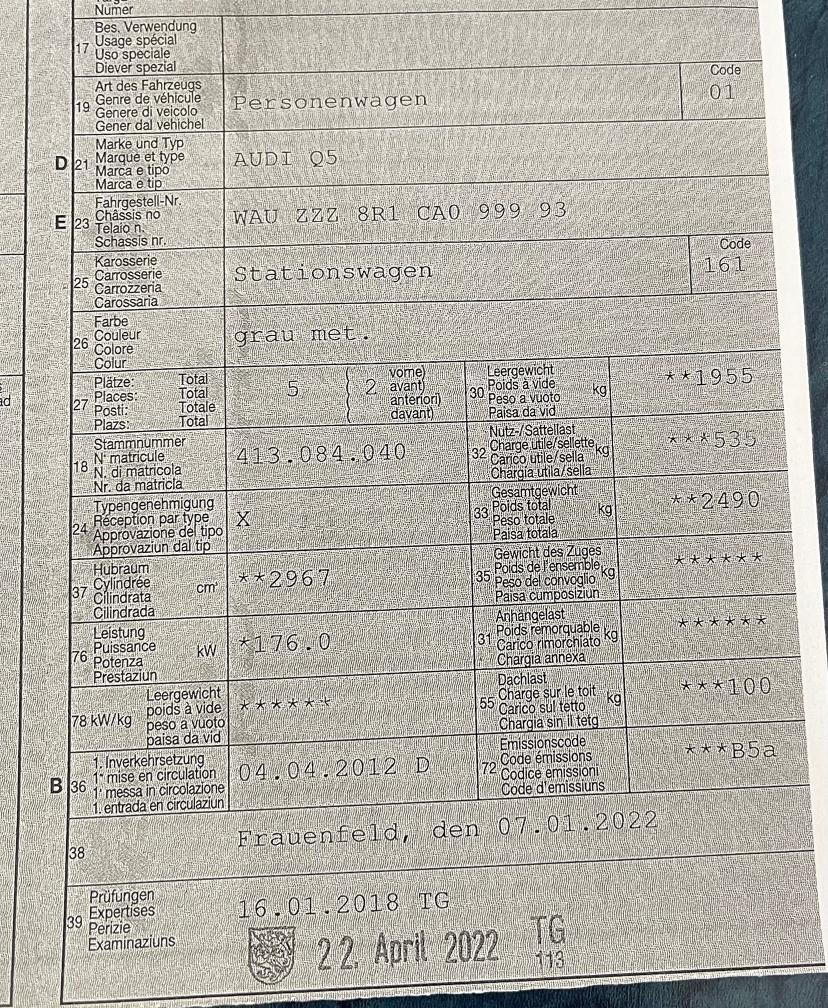 Numer
17 Bes. Verwendung
Usage spécial
Uso speciale
Diever spezial
19 Art des Fahrzeugs
Genre de véhicule
Genere di veicolo
Gener dal vehichel
Personenwagen
Code
01
D 21 Marke und Typ
Marque et type
Marca e tipo
Marca e tip
AUDI Q5
E 23 Fahrgestell-Nr.
Châssis no
Telaio n.
Schassis nr.
WAU ZZZ 8R1 CA0 999 93
25 Karosserie
Carrosserie
Carrozzeria
Carossaria
Stationswagen
Code
161
26 Farbe
Couleur
Colore
Colur
grau met.
27 Plätze: Total
Places: Total
Posti: Totale
Plazs: Total
5 ( 2 vorne)
avant)
anteriori)
davant)
30 Leergewicht
Poids à vide
Peso a vuoto
Paisa da vid
kg
**1955
18 Stammnummer
N° matricule
N. di matricola
Nr. da matricla
413.084.040
32 Nutz-/Sattellast
Charge utile/sellette
Carico utile/sella
Chargia utila/sella
kg
***535
24 Typengenehmigung
Réception par type
Approvazione del tipo
Approvaziun dal tip
X
33 Gesamtgewicht
Poids total
Peso totale
Paisa totala
kg
**2490
37 Hubraum
Cylindrée
Cilindrata
Cilindrada
cm³
**2967
35 Gewicht des Zuges
Poids de l'ensemble
Peso del convoglio
Paisa cumposiziun
kg
******
76 Leistung
Puissance
Potenza
Prestaziun
kW
*176.0
31 Anhängelast
Poids remorquable
Carico rimorchiato
Chargia annexa
kg
******
78 kW/kg Leergewicht
poids à vide
peso a vuoto
paisa da vid
******
55 Dachlast
Charge sur le toit
Carico sul tetto
Chargia sin il tetg
kg
***100
B 36 1. Inverkehrsetzung
1ʳᵉ mise en circulation
1ª messa in circolazione
1. entrada en circulaziun
04.04.2012 D
72 Emissionscode
Code émissions
Codice emissioni
Code d'emissiuns
***B5a
38 Frauenfeld, den 07.01.2022
39 Prüfungen
Expertises
Perizie
Examinaziuns
16.01.2018 TG
22. April 2022 TG
113